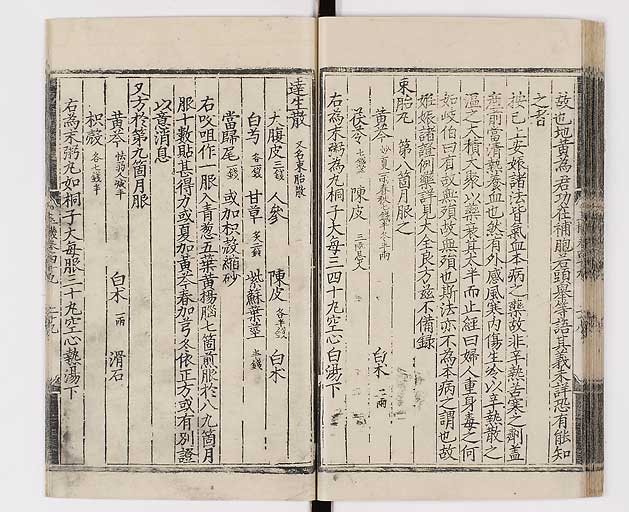 故也地黃為君功在補胞
之者
按已上安娠諸法皆氣血本病之藥故非辛熱苦寒之劑蓋
產前當清熱養血也然有外感風寒內傷生冷以辛熱散之
溫之大積大聚以藥衰其大半而止經曰婦人重身毒之何
如岐伯曰有故無殞故無殞也斯法亦不為本病之謂也故
姙娠諸證例藥詳見大全良方茲不備錄
束胎丸 第八箇月服之
黃芩 白朮 二兩
茯苓 陳皮
右為末粥為丸桐子大每三四十丸空心白湯下
達生散 又名束胎散
大腹皮 三錢 人參 陳皮 各半錢 白朮
白芍 各一錢 甘草 多二錢 紫蘇葉莖 半錢
當歸尾 一錢 或加枳殼縮砂
右㕮咀作一服入青葱五葉黃楊腦七箇煎服於八九箇月
服十數貼甚得力或夏加黃芩春加芎冬依正方或有別證
以意消息
又方於第九箇月服
黃芩 怯弱人減半 白朮 一兩 滑石
枳殼 各七錢半
右為末粥丸如桐子大每服三十丸空心熱湯下